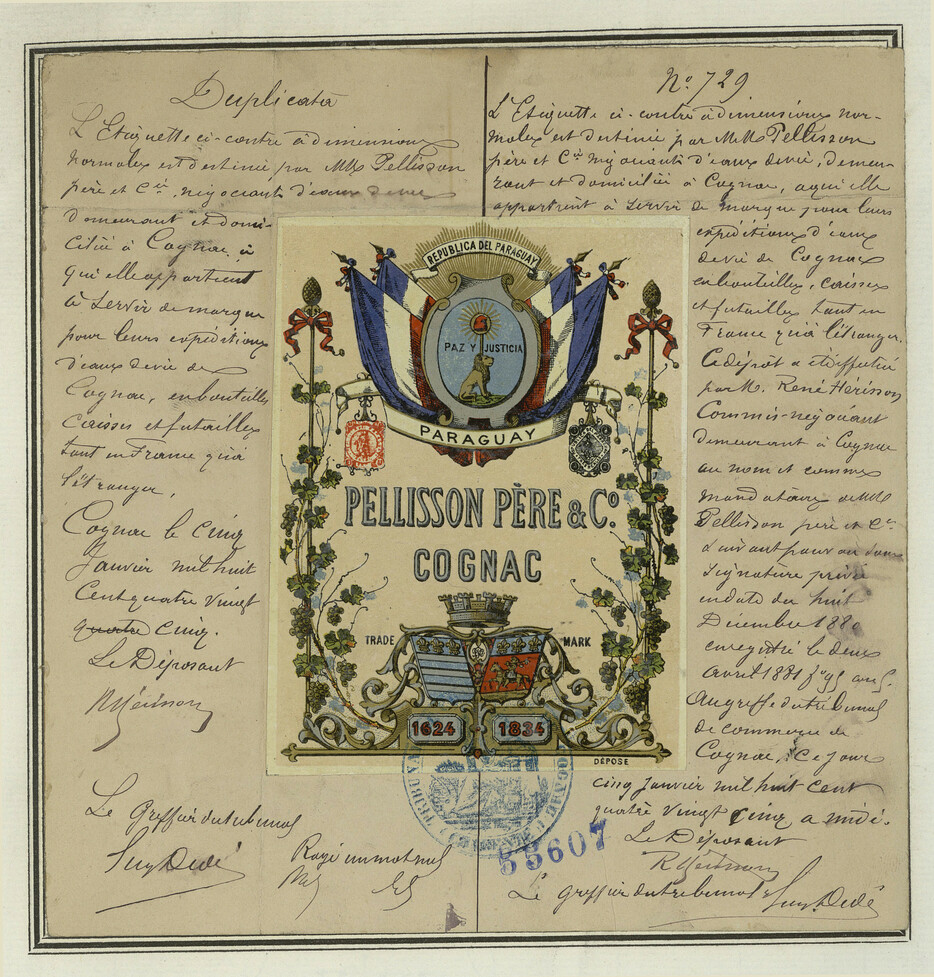 Duplicata
L'Etiquette ci-contre à dimensions
normales est destinée par MM Pellisson
père et Cie négociants d'eaux de vie
demeurant et domi-
ciliés à Cognac, à
qui elle appartient
à servir de marque
pour leurs expéditions
d'eaux de vie de
Cognac, en bouteilles
caisses et futailles
tant en France qu'à
l'étranger,
Cognac le cinq
Janvier mil huit
Cent quatre vingt
quatre cinq.
Le Déposant
RHérisson
Le Greffier du tribunal
Rayé un mot nul
No 729
L'Etiquette ci-contre à dimensions nor-
males est destinée par MM Pellisson
père et Cie négociants d'eaux de vie, demeu-
rant et domiciliés à Cognac, à qui elle
appartient à servir de marque pour leurs
expéditions d'eaux
de vie de Cognac
en bouteilles, caisses
et futailles tant en
France qu'à l'étranger.
Ce dépôt a été effectué
par M. René Hérisson
Commis-négociant
demeurant à Cognac
au nom et comme
mandataire de MM
Pellisson père et Cie
suivant pouvoir sous
signature privée
en date du huit
Décembre 1880
enregistré le deux
avril 1881
Au greffe du tribunal
de commerce de
Cognac, ce jour
cinq Janvier mil huit cent
quatre vingt cinq, a midi.
Le Déposant
RHérisson
Le greffier du tribunal
REPUBLICA DEL PARAGUAY
PAZ Y JUSTICIA
PARAGUAY
PELLISSON PÈRE & Co.
COGNAC
TRADE MARK
1624 1834
DÉPOSÉ
55607